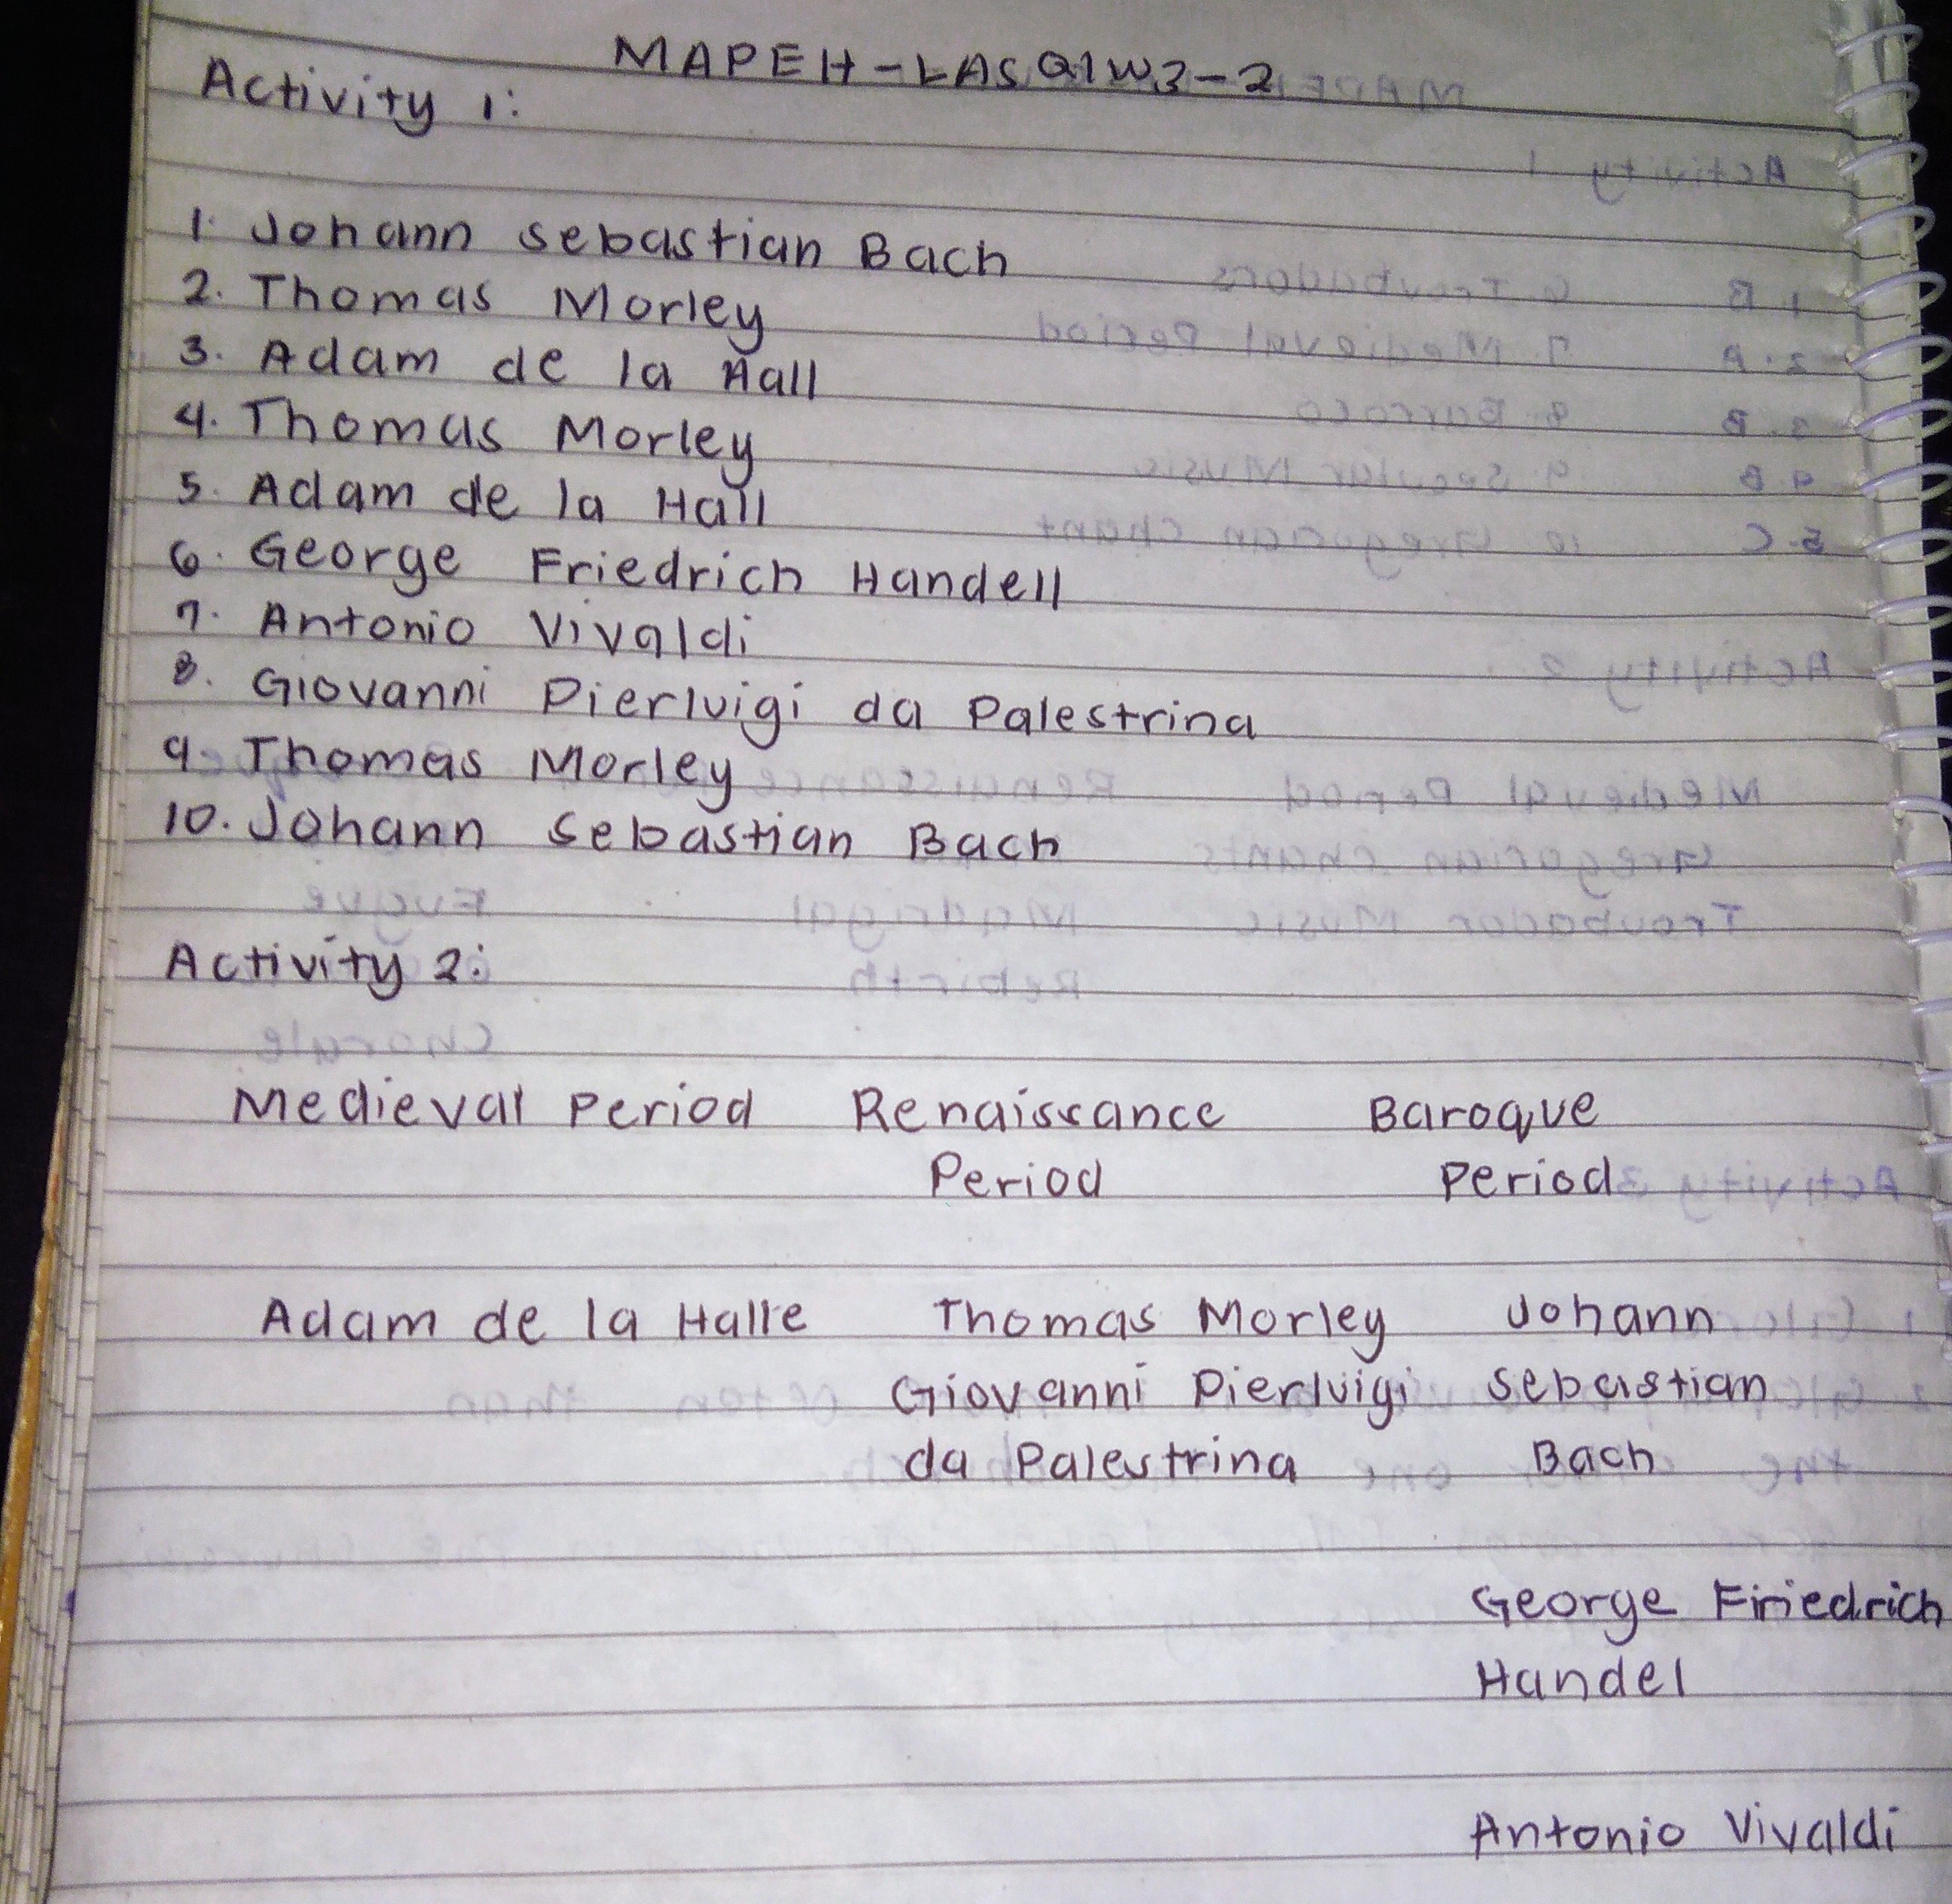 MAPEH-LAS Q1W3-2
Activity 1:
1. Johann Sebastian Bach
2. Thomas Morley
3. Adam de la Hall
4. Thomas Morley
5. Adam de la Hall
6. George Friedrich Handell
7. Antonio Vivaldi
8. Giovanni Pierluigi da Palestrina
9. Thomas Morley
10. Johann Sebastian Bach
Activity 2:
Medieval Period Renaissance Baroque
Period Period
Adam de la Halle Thomas Morley Johann
Giovanni Pierluigi Sebastian
da Palestrina Bach
George Friedrich
Handel
Antonio Vivaldi